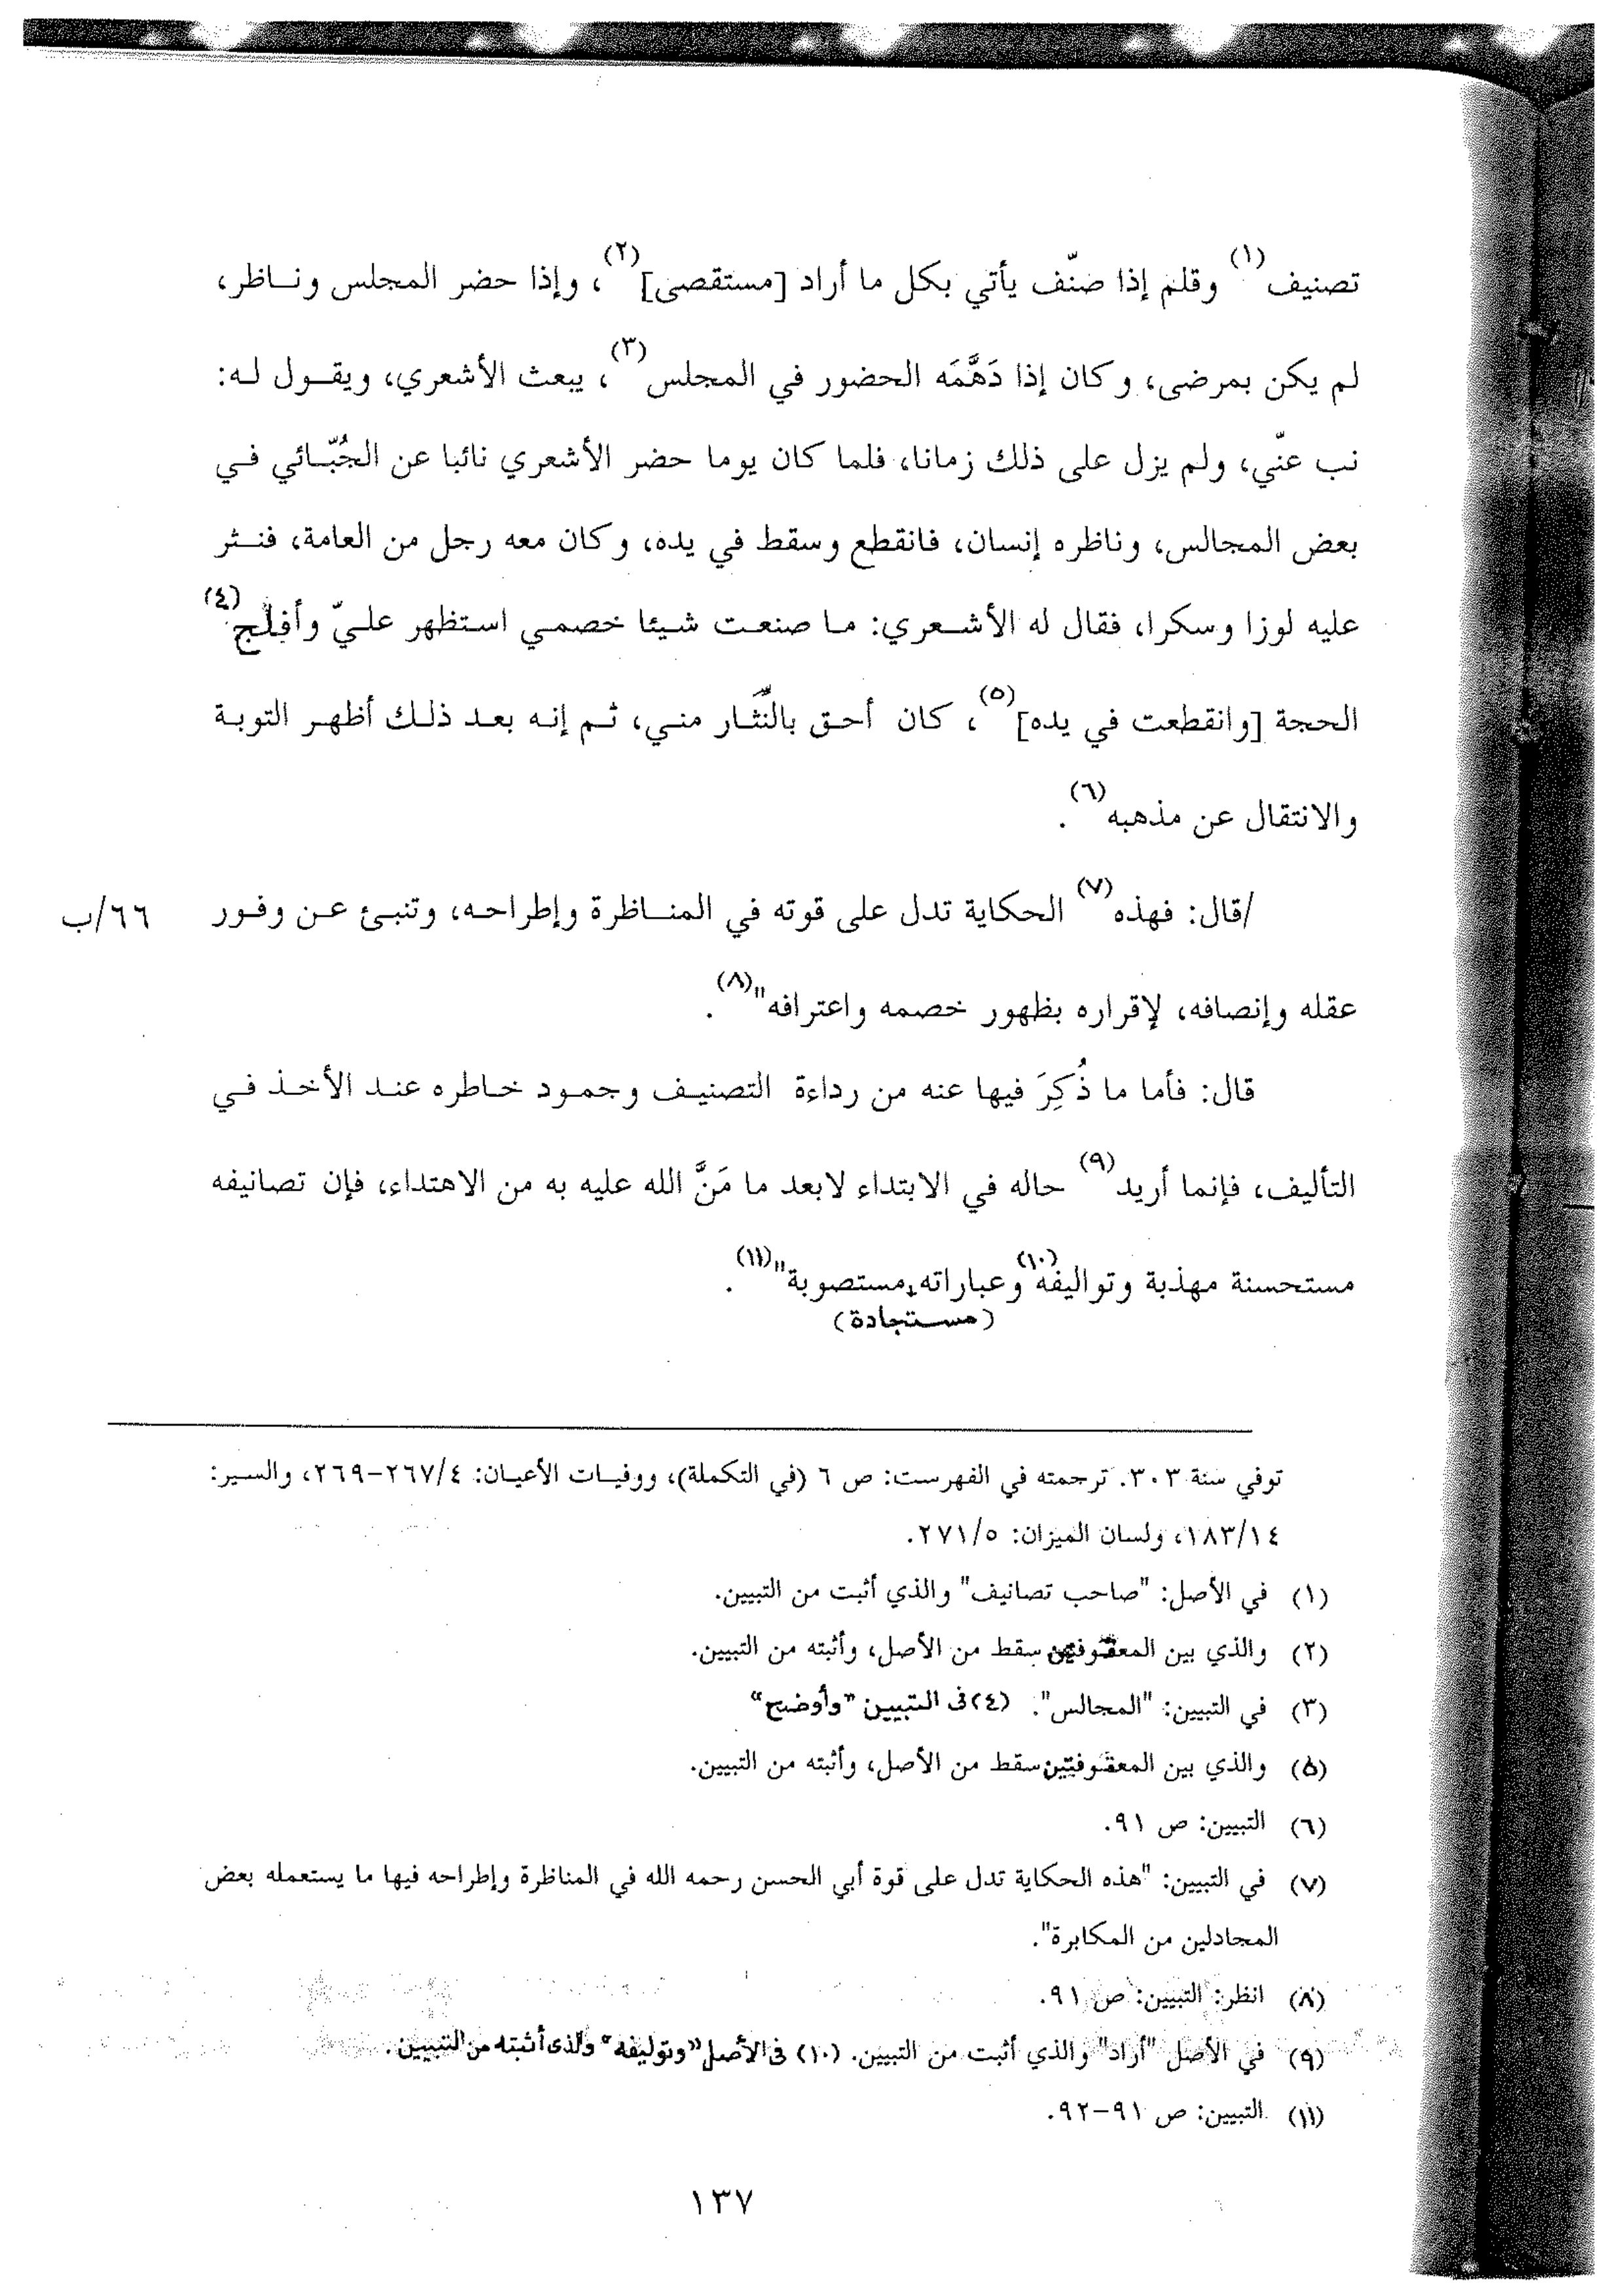 تصنيف(١) وقلم إذا صنّف يأتي بكل ما أراد [مستقصى](٢)، وإذا حضر المجلس ونـاظر،
لم يكن بمرضى، وكان إذا دَهَّمَه الحضور في المجلس(٣)، يبعث الأشعري، ويقـول لـه:
نب عنّي، ولم يزل على ذلك زمانا، فلما كان يوما حضر الأشعري نائبا عن الجُبّـائي فـي
بعض المجالس، وناظره إنسان، فانقطع وسقط في يده، وكان معه رجل من العامة، فنـثر
عليه لوزا وسكرا، فقال له الأشـعري: مـا صنعـت شـيئا خصمـي استظهر علـيّ وأفلج(٤)
الحجة [وانقطعت في يده](٥)، كان أحـق بالنِّثـار منـي، ثـم إنـه بعـد ذلـك أظهـر التوبـة
والانتقال عن مذهبه(٦).
/قال: فهذه(٧) الحكاية تدل على قوته في المنـاظرة وإطراحـه، وتنبـئ عـن وفـور ٦٦/ب
عقله وإنصافه، لإقراره بظهور خصمه واعترافه"(٨).
قال: فأما ما ذُكِرَ فيها عنه من رداءة التصنيـف وجمـود خـاطره عنـد الأخـذ فـي
التأليف، فإنما أريد(٩) حاله في الابتداء لابعد ما مَنَّ الله عليه به من الاهتداء، فإن تصانيفه
مستحسنة مهذبة وتواليفه(١٠) وعباراته مستصوبة"(١١).
(مستجادة)
توفي سنة ٣٠٣. ترجمته في الفهرست: ص ٦ (في التكملة)، ووفيـات الأعيـان: ٢٦٧/٤-٢٦٩، والسـير:
١٨٣/١٤، ولسان الميزان: ٢٧١/٥.
(١) في الأصل: "صاحب تصانيف" والذي أثبت من التبيين.
(٢) والذي بين المعقوفتين سقط من الأصل، وأثبته من التبيين.
(٣) في التبيين: "المجالس". (٤) في التبيين "وأوضح"
(٥) والذي بين المعقوفتين سقط من الأصل، وأثبته من التبيين.
(٦) التبيين: ص ٩١.
(٧) في التبيين: "هذه الحكاية تدل على قوة أبي الحسن رحمه الله في المناظرة وإطراحه فيها ما يستعمله بعض
المجادلين من المكابرة".
(٨) انظر: التبيين: ص ٩١.
(٩) في الأصل "أراد" والذي أثبت من التبيين. (١٠) في الأصل "وتوليفه" والذي أثبته من التبيين.
(١١) التبيين: ص ٩١-٩٢.
١٣٧